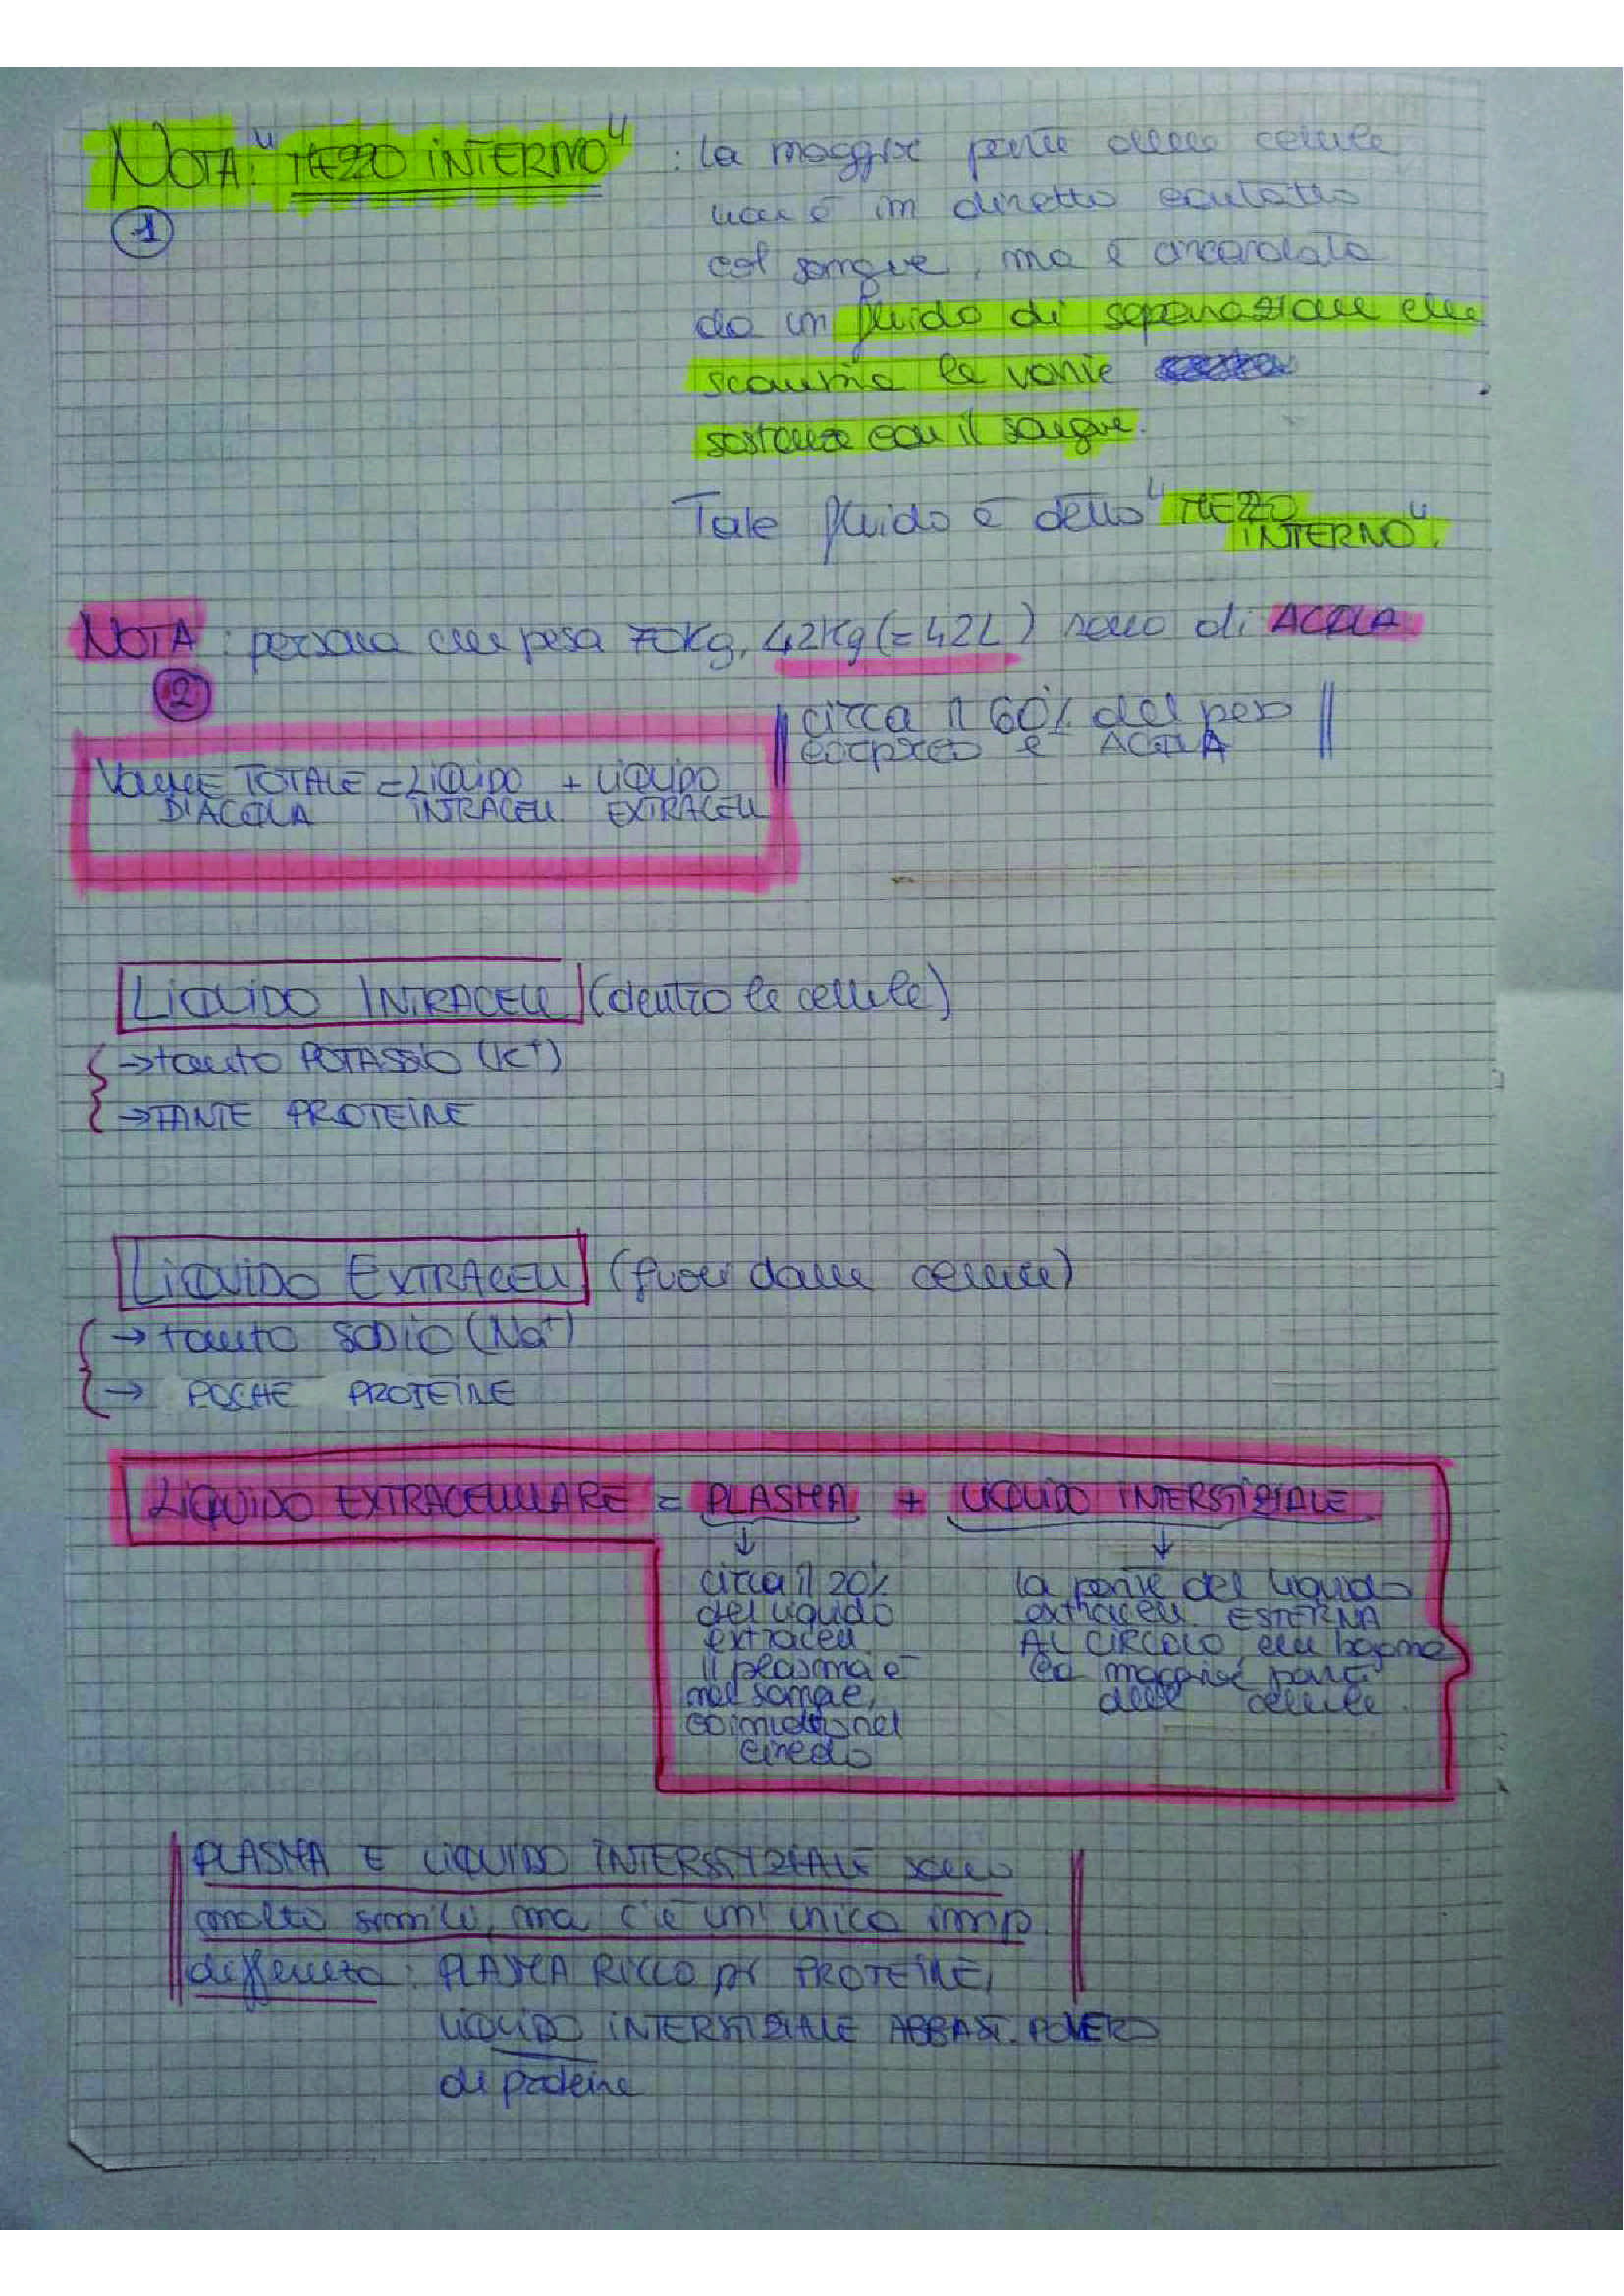 NOTA: "MEZZO INTERNO" : la maggior parte delle cellule
1
non è in diretto contatto
col sangue, ma è circondata
da un fluido di separazione che
scambia le varie
sostanze con il sangue.
Tale fluido è detto "MEZZO
INTERNO".
NOTA : persona che pesa 70Kg, 42Kg (= 42L) sono di ACQUA
2
circa il 60% del peso
corporeo è ACQUA
VOLUME TOTALE = LIQUIDO + LIQUIDO
DI ACQUA INTRACELL. EXTRACELL
LIQUIDO INTRACELL (dentro le cellule)
→ tanto POTASSIO (K+)
→ TANTE PROTEINE
LIQUIDO EXTRACELL (fuori dalle cellule)
→ tanto SODIO (Na+)
→ POCHE PROTEINE
LIQUIDO EXTRACELLULARE = PLASMA + LIQUIDO INTERSTIZIALE
↓ ↓
circa il 20% la parte del liquido
del liquido extracell. ESTERNA
extracell. AL CIRCOLO, che bagna
Il plasma è la maggior parte
nel sangue, delle cellule.
nel
circolo
PLASMA E LIQUIDO INTERSTIZIALE sono
molto simili, ma c'è un'unica imp.
differenza : PLASMA RICCO DI PROTEINE,
LIQUIDO INTERSTIZIALE ABBAST. POVERO
di proteine